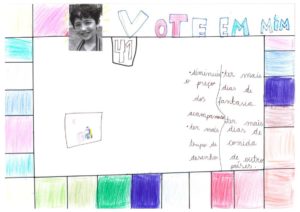 VOTE EM MIM
41
•diminuir
o preço
dos
•ter mais
tempo de
desenho
•ter mais
dias de
fantasia
•ter mais
dias de
comida
de outros
países.